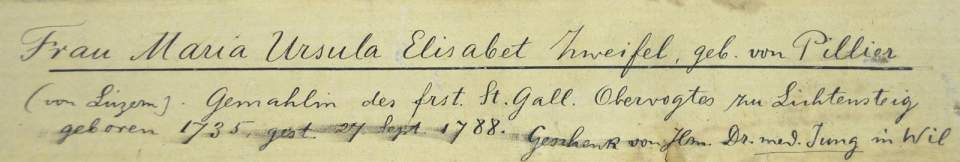 Frau Maria Ursula Elisabet Zweifel, geb. von Pillier
(von Luzern). Gemahlin des frst. St. Gall. Obervogtes zu Lichtensteig
geboren 1735, gest. 27 Sept. 1788. Geschenk von Hrn. Dr. med. Jung in Wil